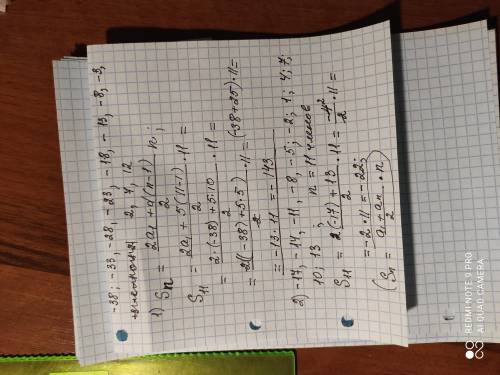 -38; -33, -28, -23, -18, -13, -8, -3,
2, 7, 12
1) Sn = 2a₁ + d(n-1) / 2 · n;
S₁₁ = 2a₁ + 5(11-1) / 2 · 11 =
= 2·(-38) + 5·10 / 2 · 11 =
= 2((-38) + 5·5) / 2 · 11 = (-38+25)·11 =
= -13·11 = -143
2) -17, -14, -11, -8, -5; -2; 1; 4; 7;
10, 13; n = 11 членов
S₁₁ = (-17) + 13 / 2 · 11 = -4 / 2 · 11 =
= -2·11 = -22;
(Sn = a₁ + an / 2 · n)
REDMI NOTE 9 PRO
AI QUAD CAMERA